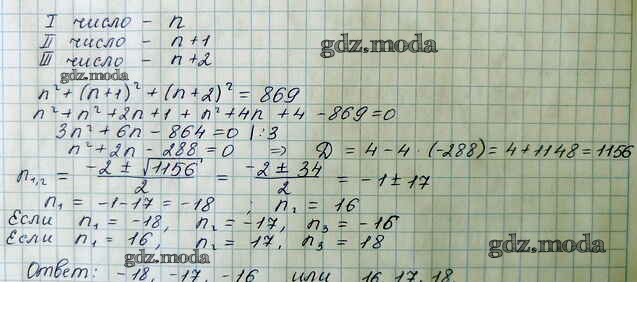 I число - n
II число - n+1
gdz.moda
III число - n+2
gdz.moda
n² + (n+1)² + (n+2)² = 869
n² + n² + 2n + 1 + n² + 4n + 4 - 869 = 0
3n² + 6n - 864 = 0 | :3
n² + 2n - 288 = 0 ⇒ D = 4 - 4 · (-288) = 4 + 1148 = 1156
n₁,₂ = (-2 ± √1156)/2 = (-2 ± 34)/2 = -1 ± 17
n₁ = -1 - 17 = -18 ; n₂ = 16
Если n₁ = -18, n₂ = -17, n₃ = -16
Если n₁ = 16, n₂ = 17, n₃ = 18
gdz.moda
gdz.moda
Ответ: -18, -17, -16 или 16, 17, 18